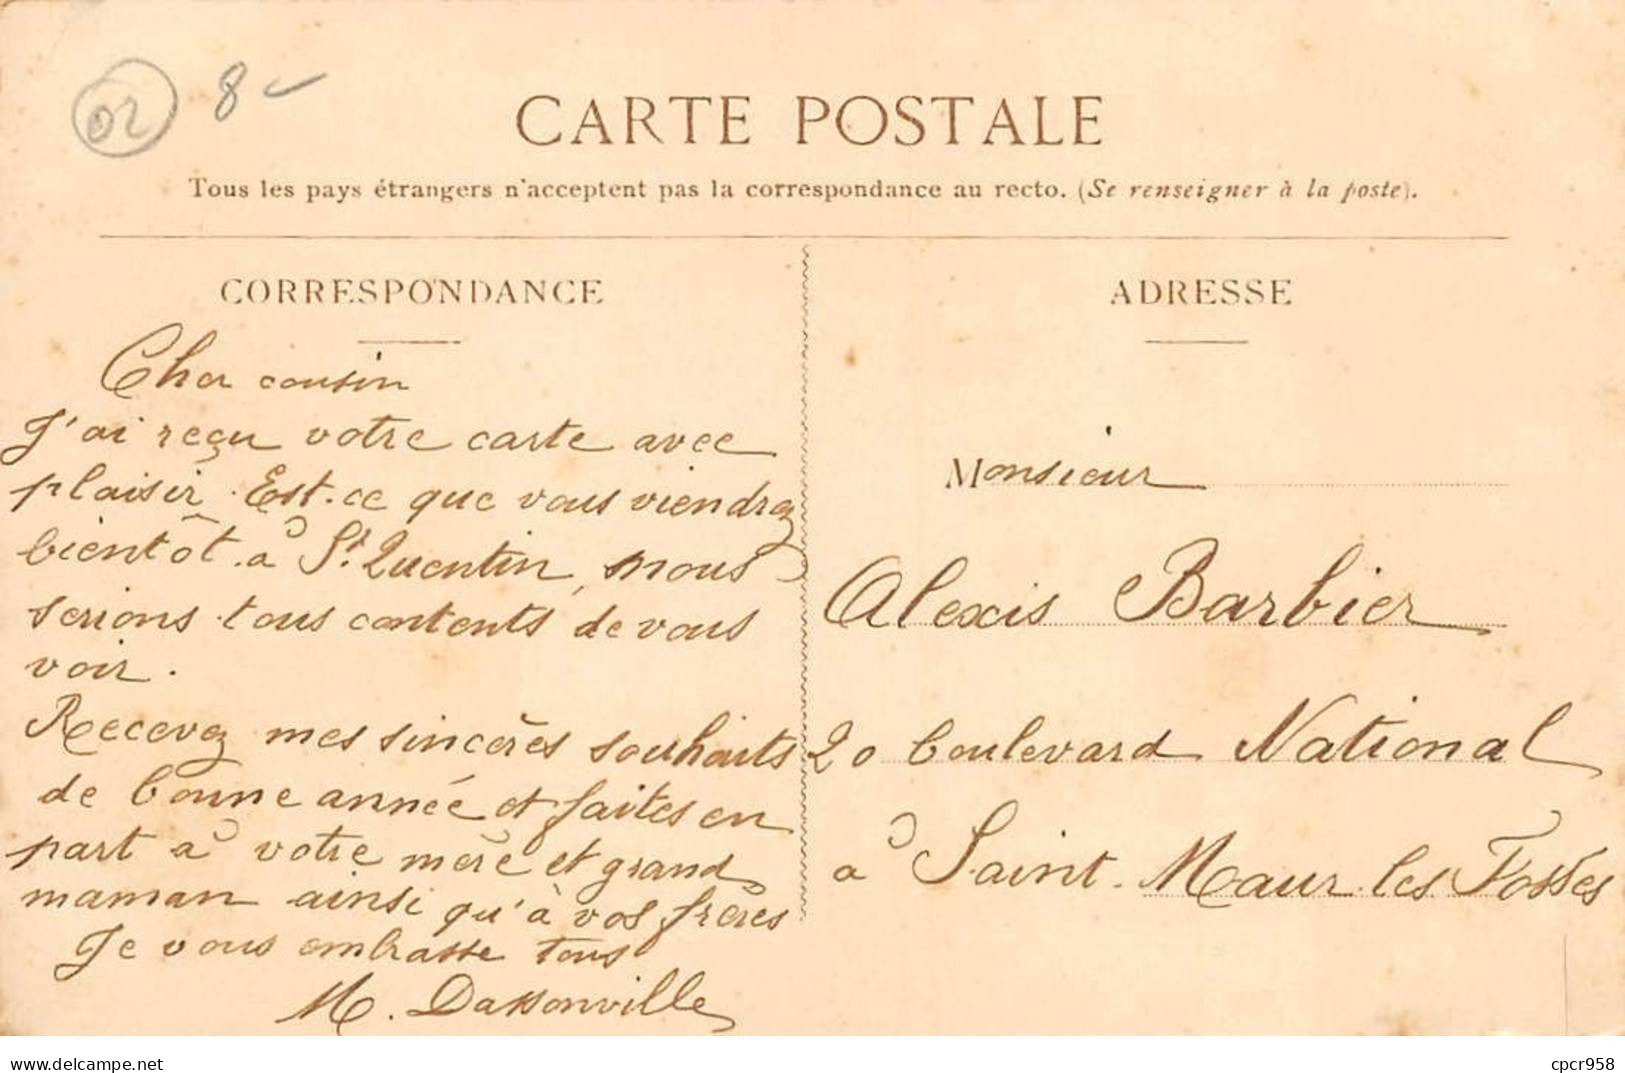 02 8 -
CARTE POSTALE
Tous les pays étrangers n'acceptent pas la correspondance au recto. (Se renseigner à la poste).
CORRESPONDANCE
Cher cousin
J'ai reçu votre carte avec
plaisir. Est-ce que vous viendrez
bientôt à St Quentin, nous
serions tous contents de vous
voir.
Recevez mes sincères souhaits
de bonne année et faites en
part à votre mère et grand
maman ainsi qu'à vos frères
Je vous embrasse tous
M. Dassonville
ADRESSE
Monsieur
Alexis Barbier
20 boulevard National
à Saint-Maur-les Fossés
www.delcampe.net
cpcr958